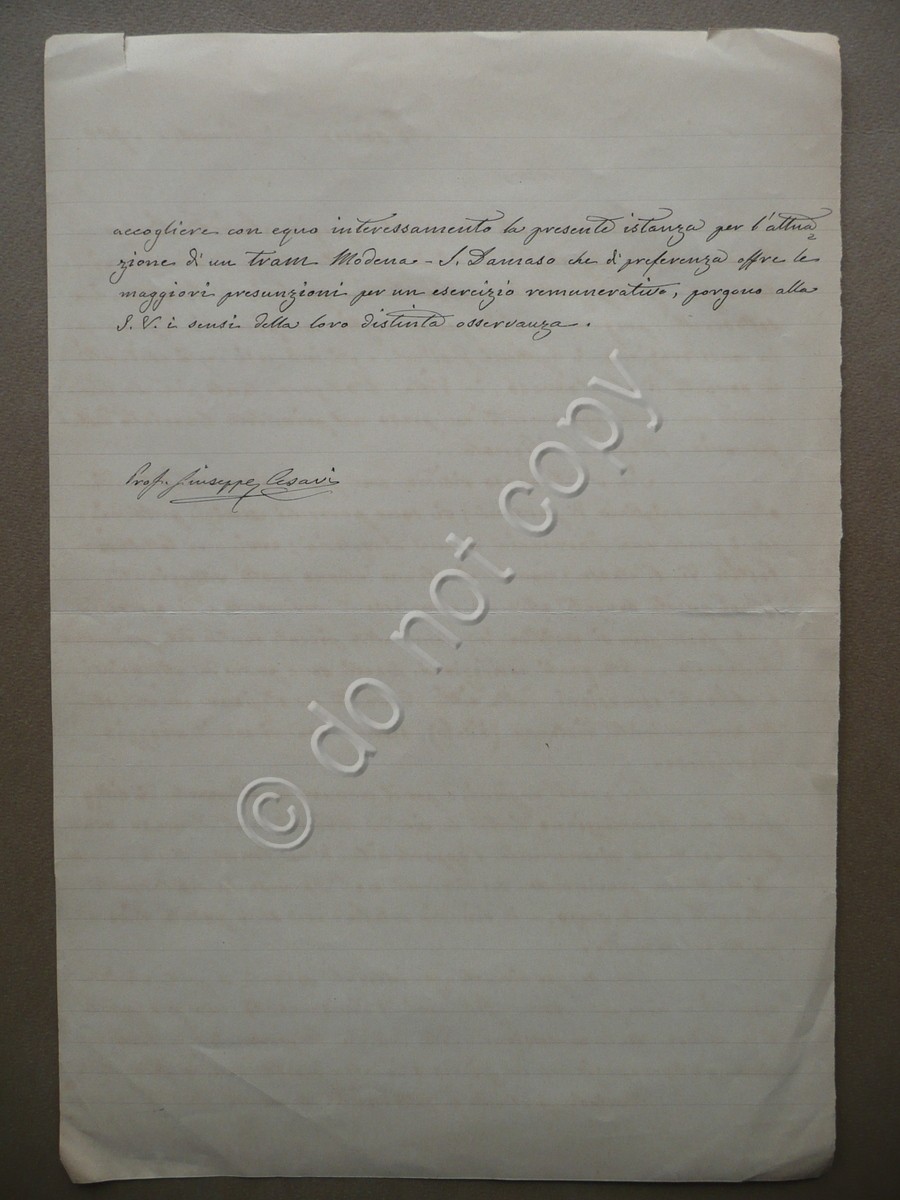 accogliere con equo interessamento la presente istanza per l'attua=
zione di un tram Modena - S. Damaso che di preferenza offre le
maggiori presunzioni per un esercizio remunerativo, porgono alla
S. V. i sensi della loro distinta osservanza.
Prof. Giuseppe Cesari
© do not copy